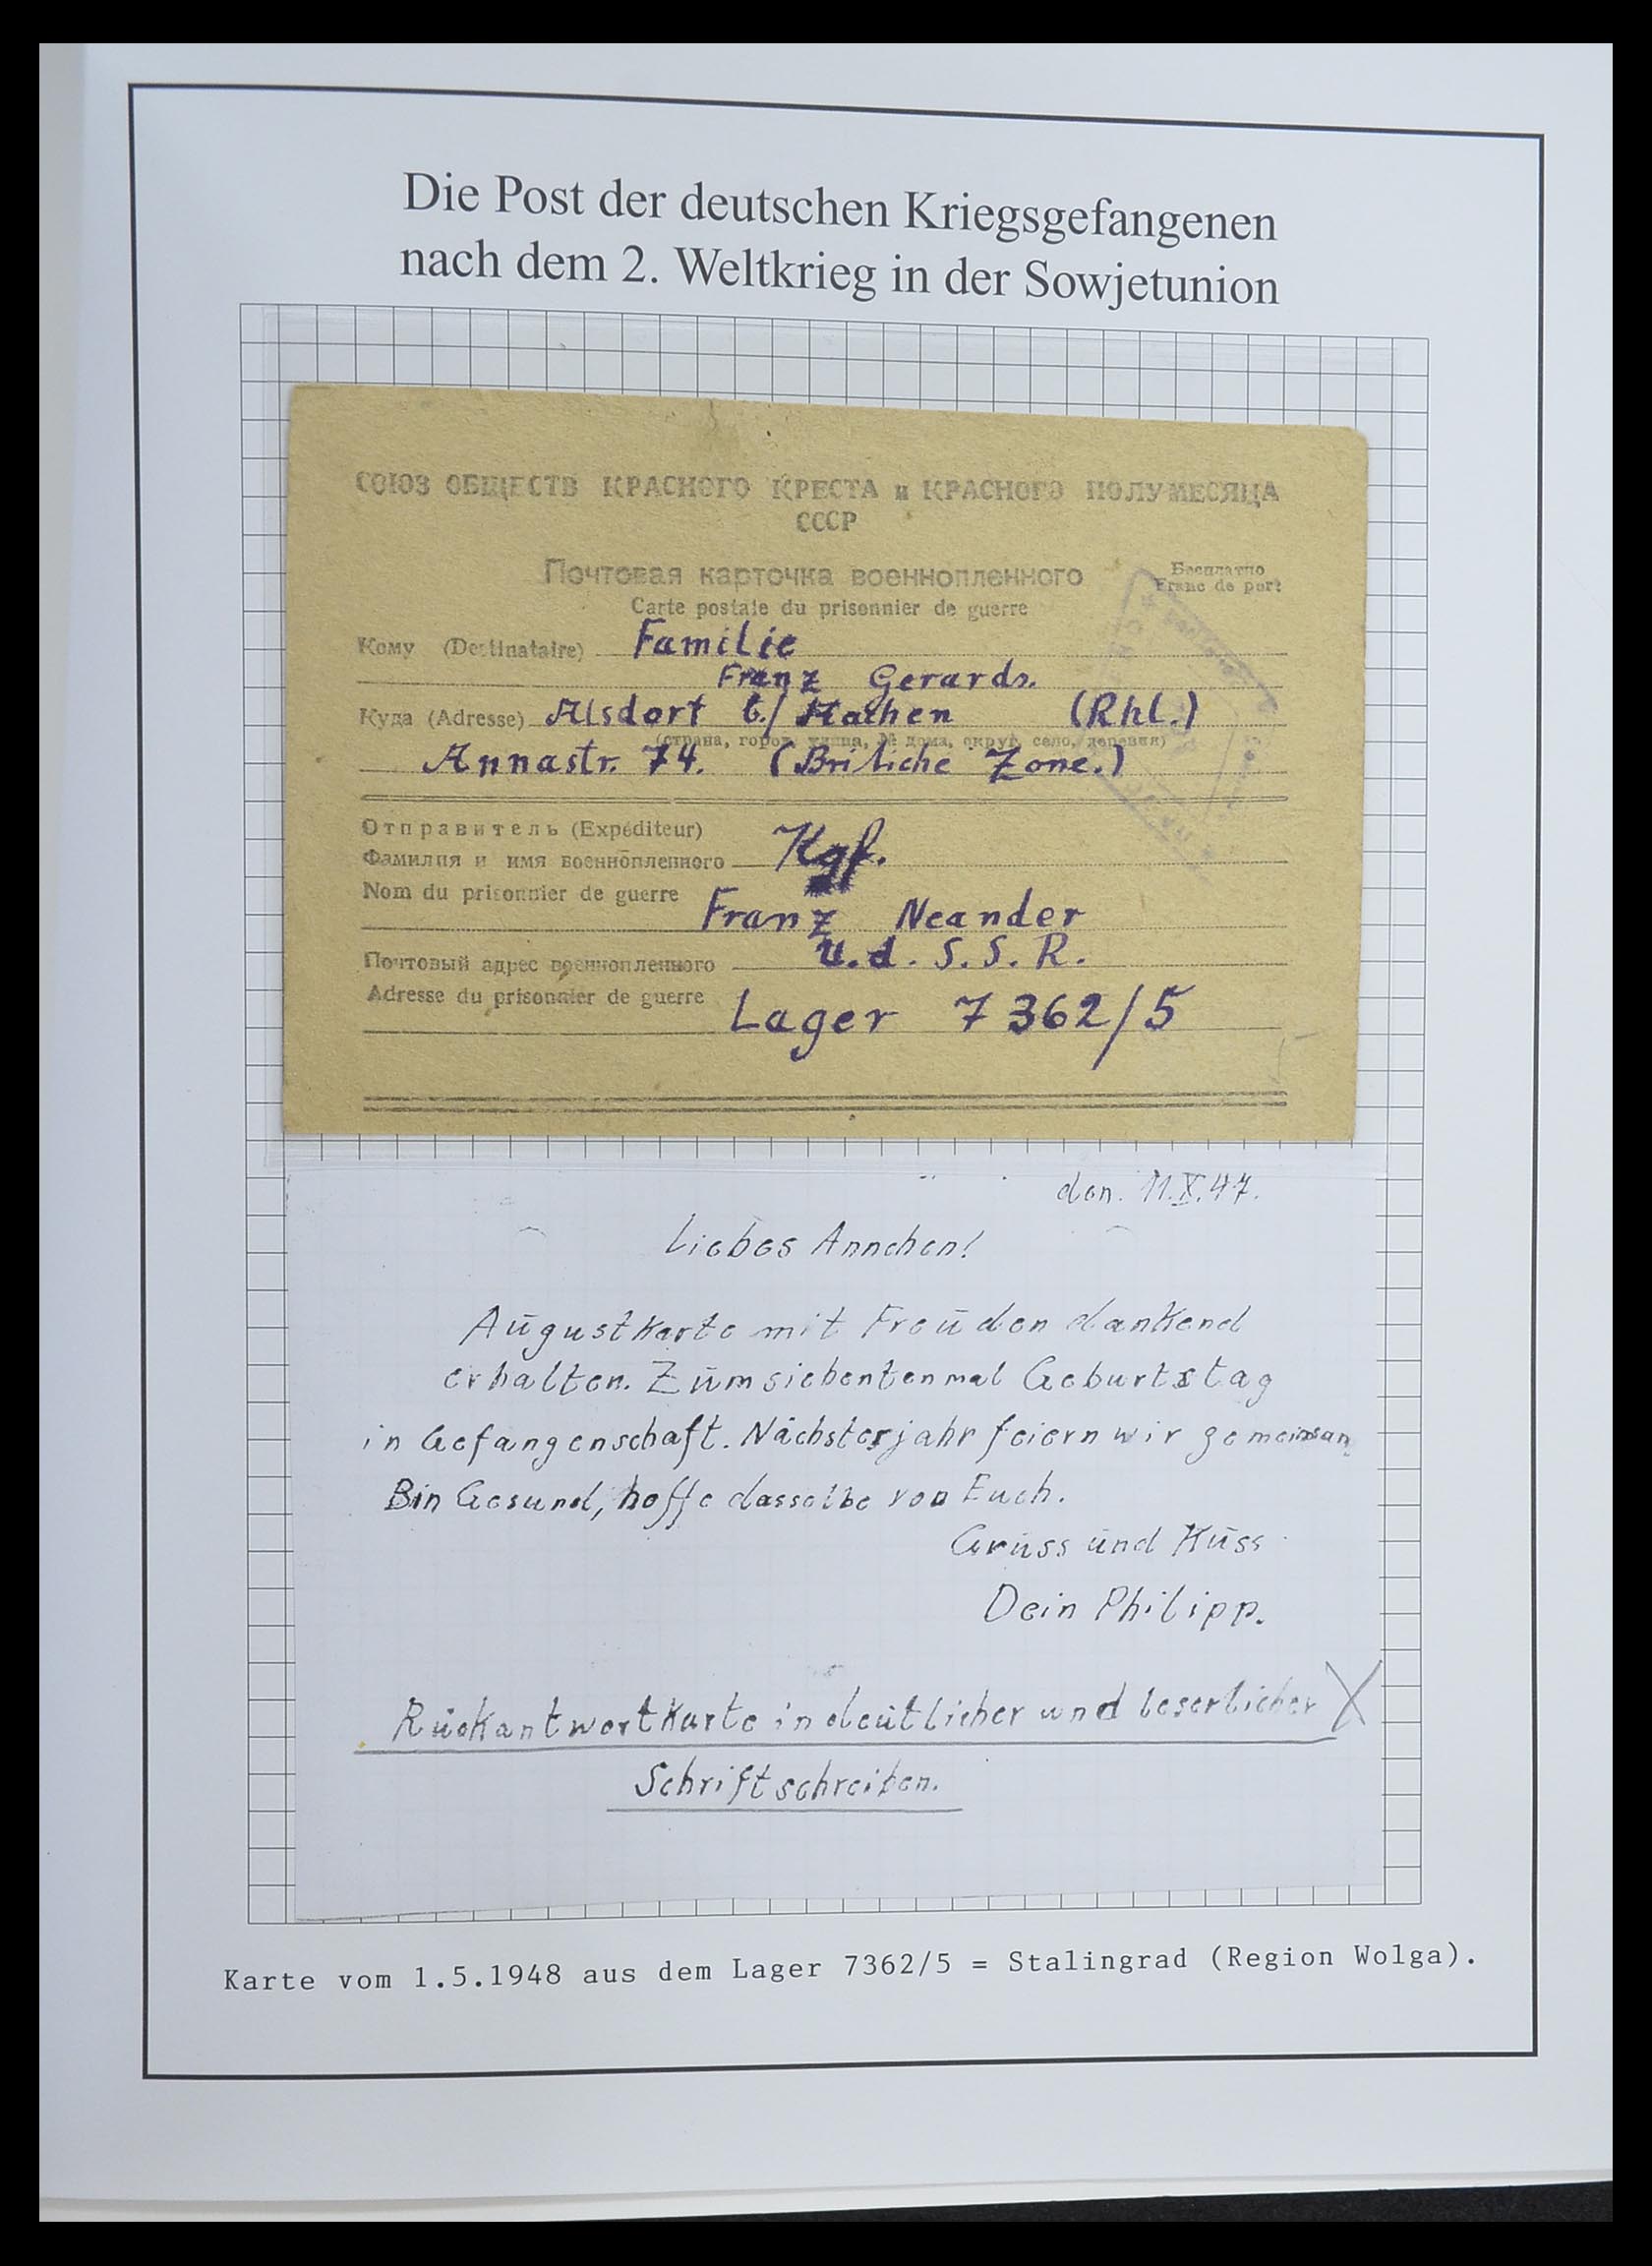 Die Post der deutschen Kriegsgefangenen
nach dem 2. Weltkrieg in der Sowjetunion
СОЮЗ ОБЩЕСТВ КРАСНОГО КРЕСТА и КРАСНОГО ПОЛУМЕСЯЦА
СССР
Почтовая карточка военнопленного
Бесплатно
Franc de port
Carte postale du prisonnier de guerre
Кому (Destinataire) Familie
Franz Gerards.
Куда (Adresse) Alsdorf b./Aachen (Rhl.)
(страна, город, улица, № дома, округ, село, деревня)
Annastr. 74. (Britiche Zone.)
Отправитель (Expéditeur)
Фамилия и имя военнопленного Kgf.
Nom du prisonnier de guerre
Franz Neander
U.d.S.S.R.
Почтовый адрес военнопленного
Adresse du prisonnier de guerre
Lager 7362/5
den. 11.X.47.
Liebes Annchen!
Augustkarte mit Freuden dankend
erhalten. Zum siebentenmal Geburtstag
in Gefangenschaft. Nächsterjahr feiern wir gemeinsam
Bin Gesund, hoffe dasselbe von Euch.
Gruss und Kuss
Dein Philipp.
Rückantwortkarte in deutlicher und leserlicher X
Schrift schreiben.
Karte vom 1.5.1948 aus dem Lager 7362/5 = Stalingrad (Region Wolga).